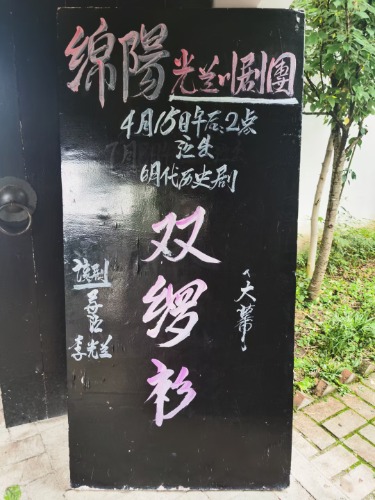 绵陽光兰川剧團
4月15日午后:2点
泣生
明代历史剧
双缪衫
《大幕》
该剧
导演
李光兰